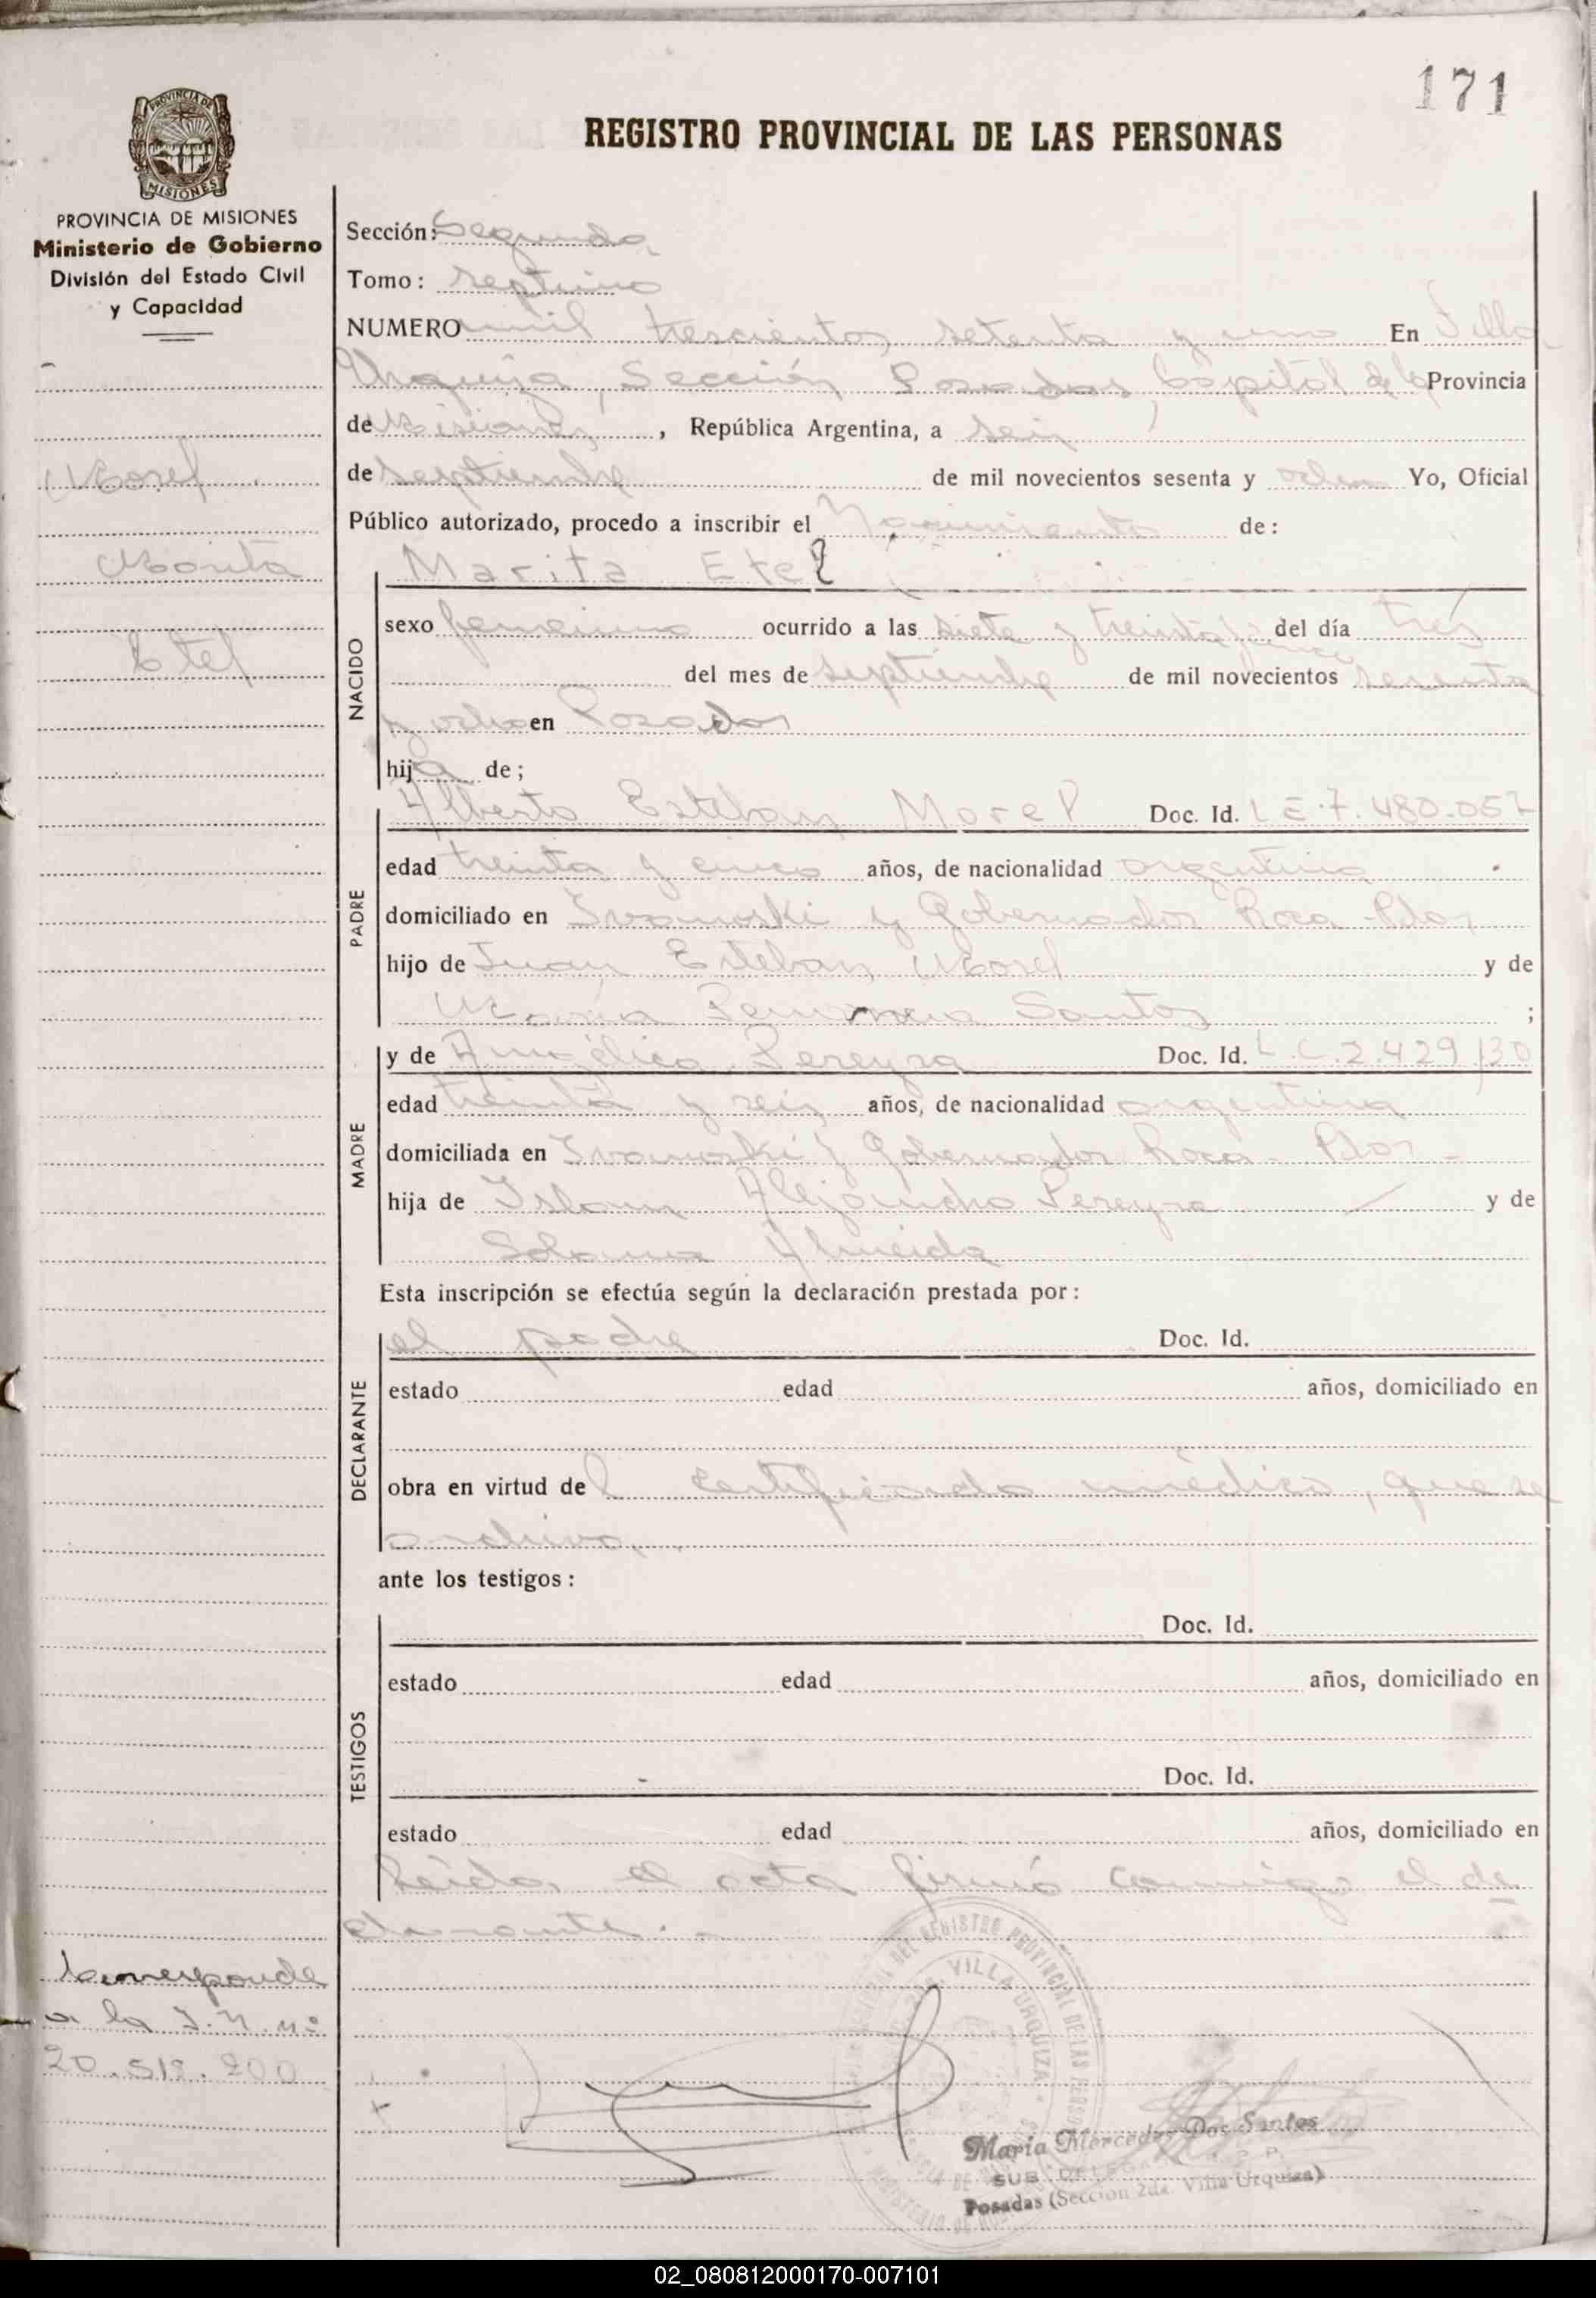 171
REGISTRO PROVINCIAL DE LAS PERSONAS
PROVINCIA DE
MISIONES
PROVINCIA DE MISIONES
Ministerio de Gobierno
División del Estado Civil
y Capacidad
Morel
Marita
Etel
Corresponde
a la I.N. nº
Sección: Segunda
Tomo: septimo
NUMERO mil trescientos setenta y uno En Villa
Urquiza, Sección Posadas, Capital de la Provincia
de Misiones, República Argentina, a seis
de septiembre de mil novecientos sesenta y ocho Yo, Oficial
Público autorizado, procedo a inscribir el Nacimiento de:
Marita Etel
NACIDO
sexo femenino ocurrido a las siete y treinta del día tres
del mes de septiembre de mil novecientos sesenta
y ocho en Posadas
hija de;
PADRE
Alberto Esteban Morel Doc. Id. L E. 7.480.057
edad treinta y cinco años, de nacionalidad argentina
domiciliado en Ivanoski y Gobernador Roca - Pdas
hijo de Juan Esteban Morel y de
María Santos ;
MADRE
y de Angélica Pereyra Doc. Id. L.C.2.429.130
edad treinta y seis años, de nacionalidad argentina
domiciliada en Ivanoski y Gobernador Roca - Pdas -
hija de Alejandro Pereyra y de
Almeida
Esta inscripción se efectúa según la declaración prestada por:
DECLARANTE
el padre Doc. Id.
estado edad años, domiciliado en
obra en virtud del certificado médico, que se
archiva.
ante los testigos:
TESTIGOS
Doc. Id.
estado edad años, domiciliado en
Doc. Id.
estado edad años, domiciliado en
Leída el acta firmó conmigo el de
clarante.
VILLA URQUIZA
María Mercedes Dos Santos
SUB DELEGADA R. P. P.
Posadas (Sección 2da. Villa Urquiza)
02_080812000170-007101